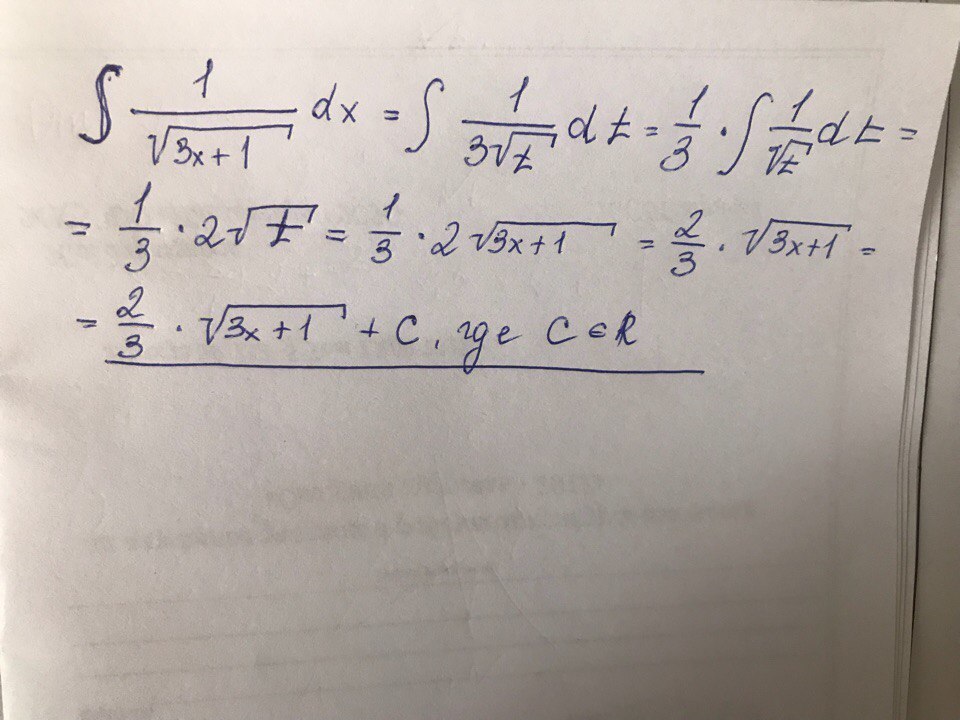 ∫ 1/√(3x+1) dx = ∫ 1/(3√t) dt = 1/3 · ∫ 1/√t dt =
= 1/3 · 2√t = 1/3 · 2√(3x+1) = 2/3 · √(3x+1) =
= 2/3 · √(3x+1) + C, где C ∈ R